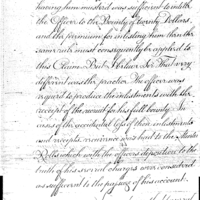 having him mustered was sufficient to entitle
the Officer to the Bounty of twenty Dollars
and the premium for inlisting him then the
same rule must consequently be applied to
this Claim But Believe Sir That very
different was the practice The officer was
required to produce the inlistments with the
receipt of the recruit for his full bounty. In
cases of the accidental loss of these inlistments
and receipts, recurrence was had to the Muster
Rolls which with the officers deposition to the
truth of his several charges were considered
as sufficient to the passing of his account.